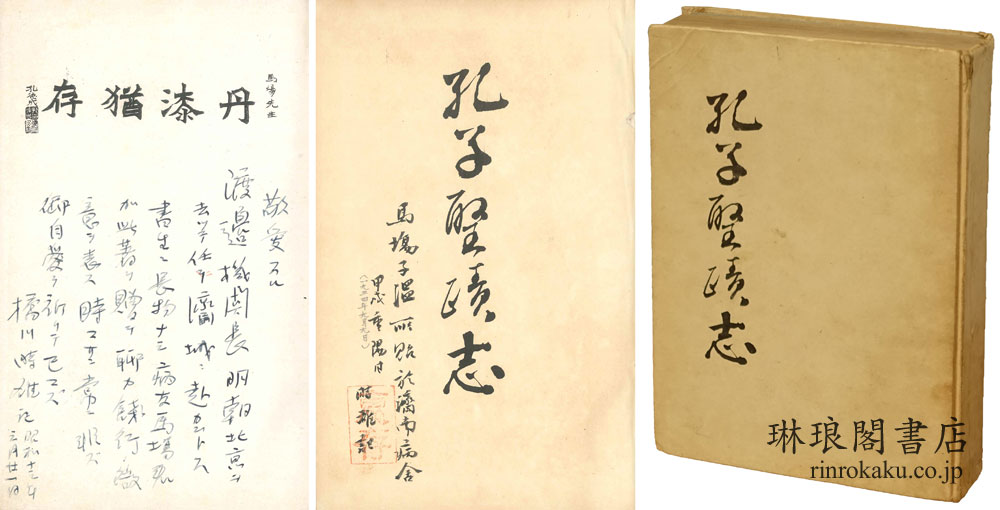 馬場先生
丹漆猶存
孔德成
敬愛スル
渡邉機関長明朝北京ヲ
去ツテ任ヲ濟城ニ赴カントス
書生ニ長物ナシ病友馬場君
ガ此著ヲ贈リ聊カ餞行ノ微
意ヲ表ス時
御自愛ヲ祈テ已マズ
橋川時雄記昭和十三年
三月廿一日
孔子聖蹟志
馬場子溫所貽於濟南病舎
甲戌重陽日
時雄記
孔子聖蹟志
琳琅閣書店
rinrokaku.co.jp